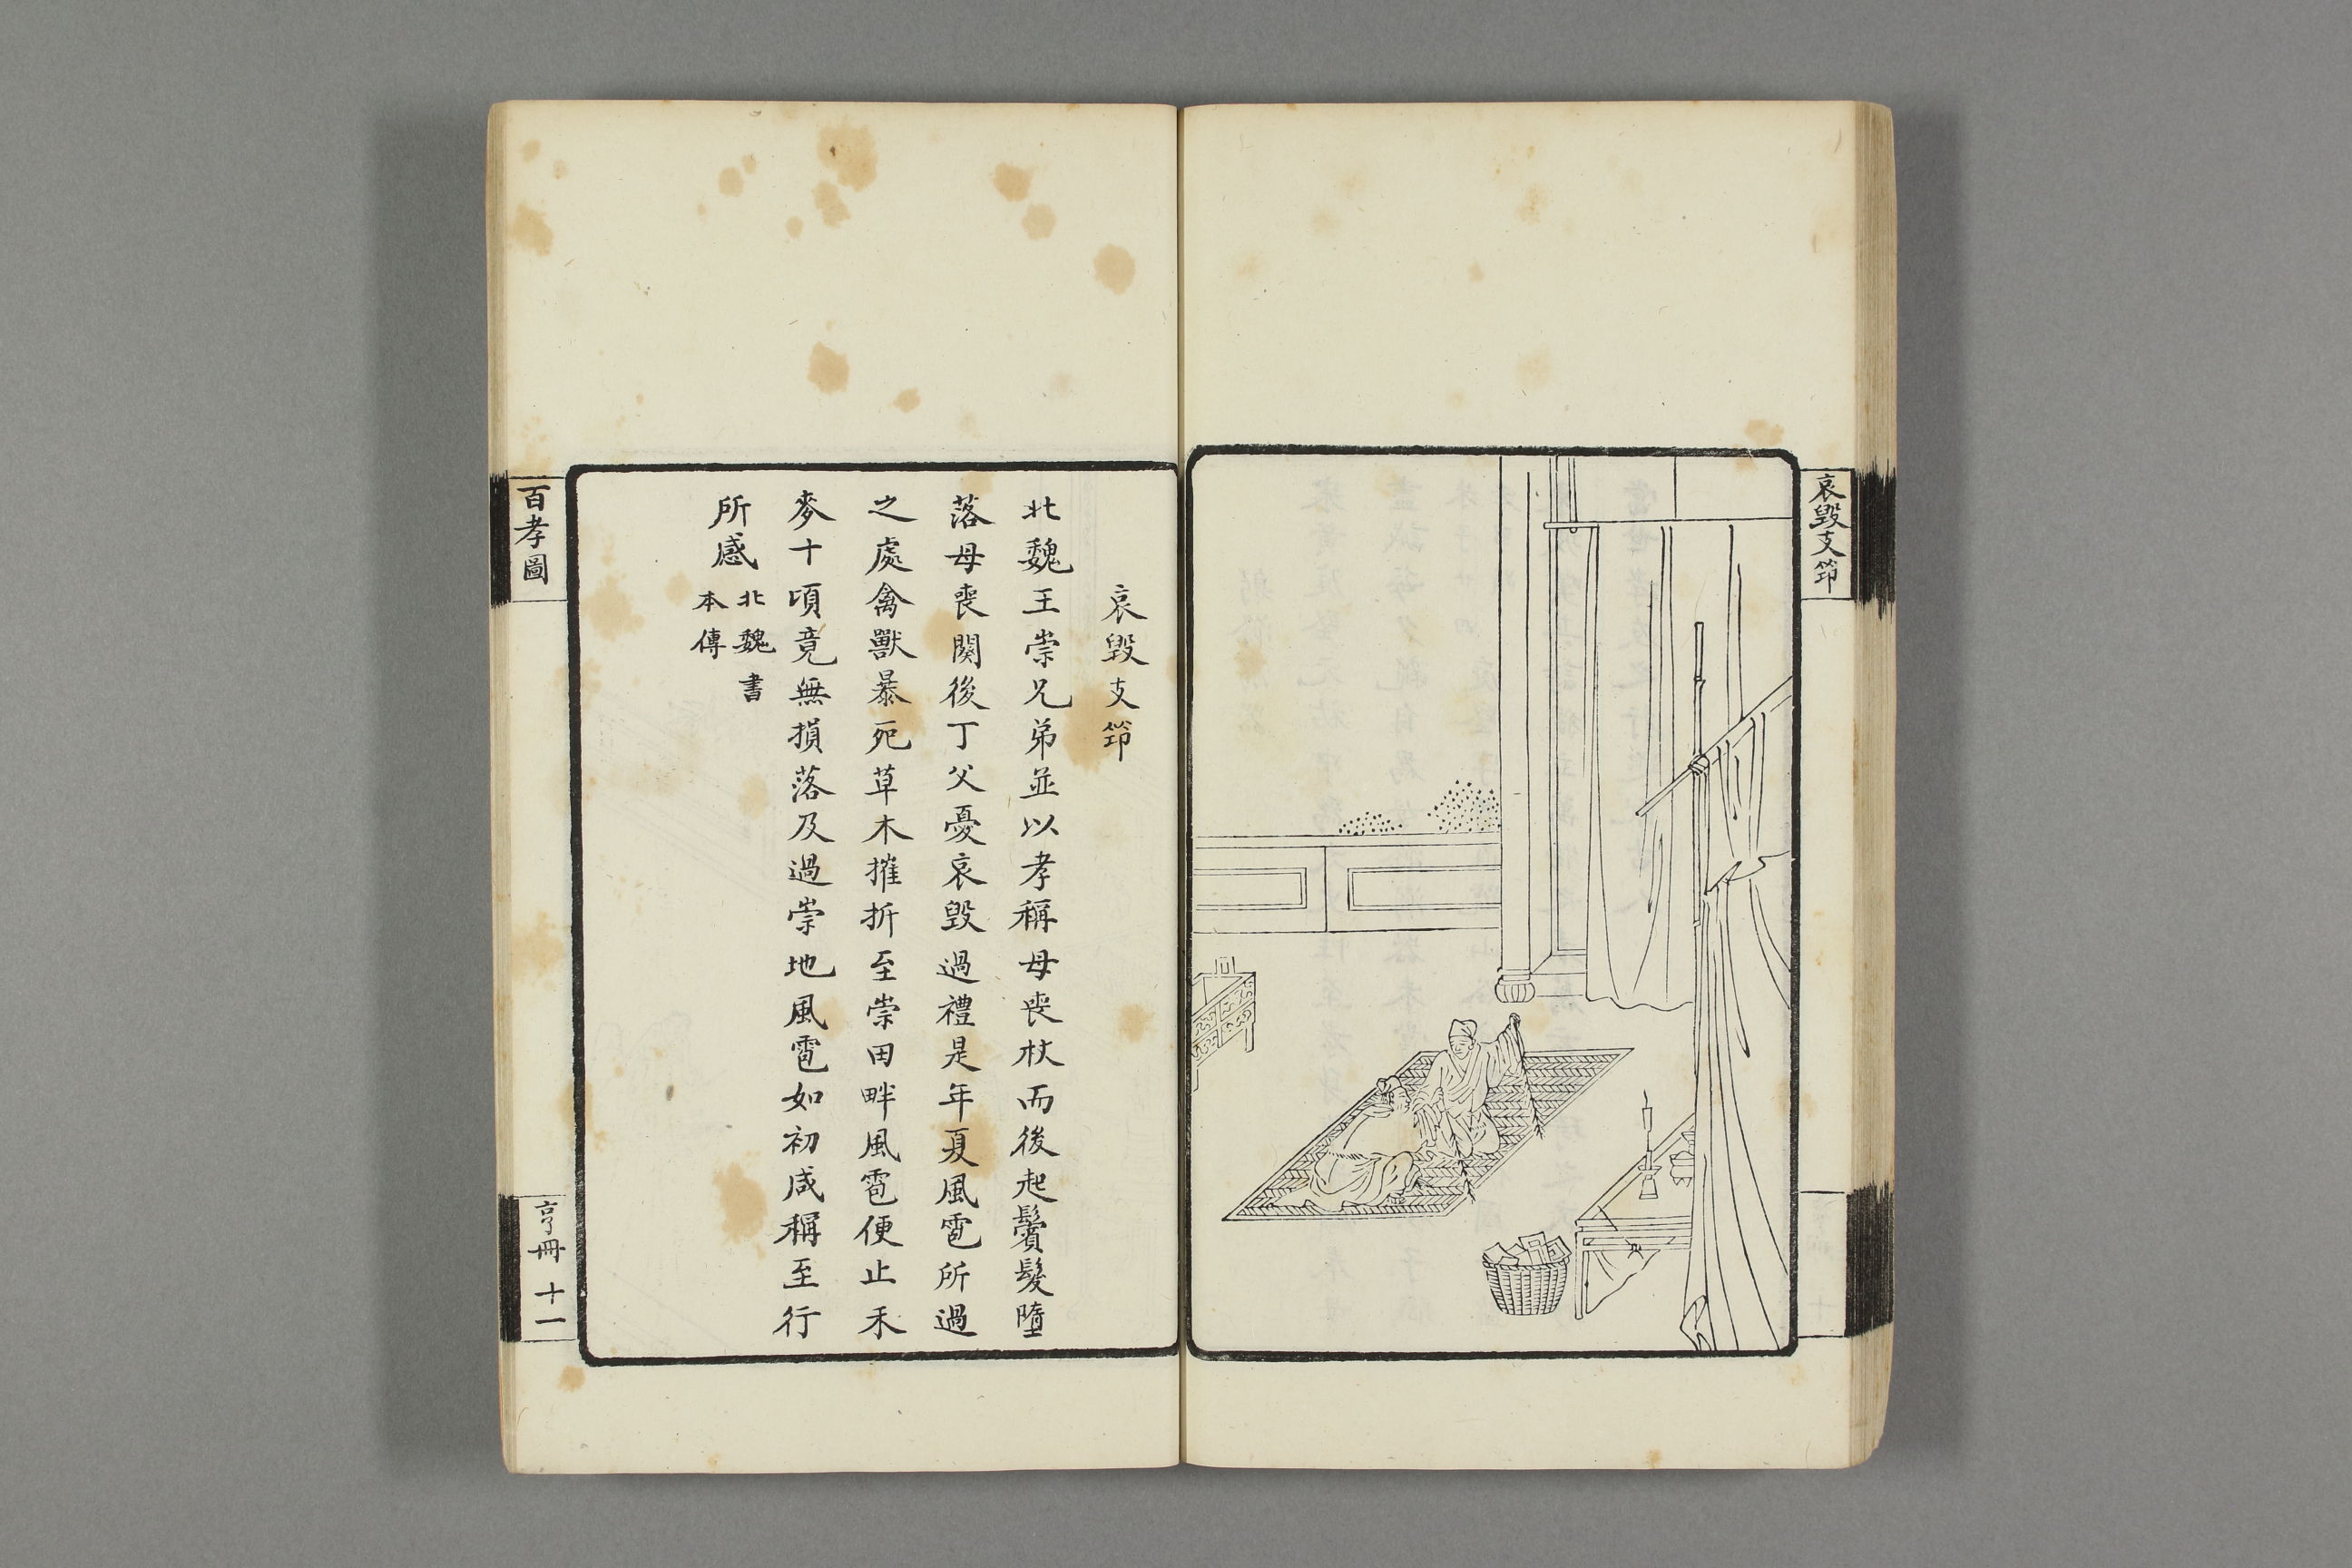 哀毀支筇
哀毀支筇
北魏王崇兄弟並以孝稱母喪杖而後起鬢髮墮
落母喪闋後丁父憂哀毀過禮是年夏風雹所過
之處禽獸暴死草木摧折至崇田畔風雹便止禾
麥十頃竟無損落及過崇地風雹如初咸稱至行
所感
北魏書
本傳
百孝圖
亨冊 十一